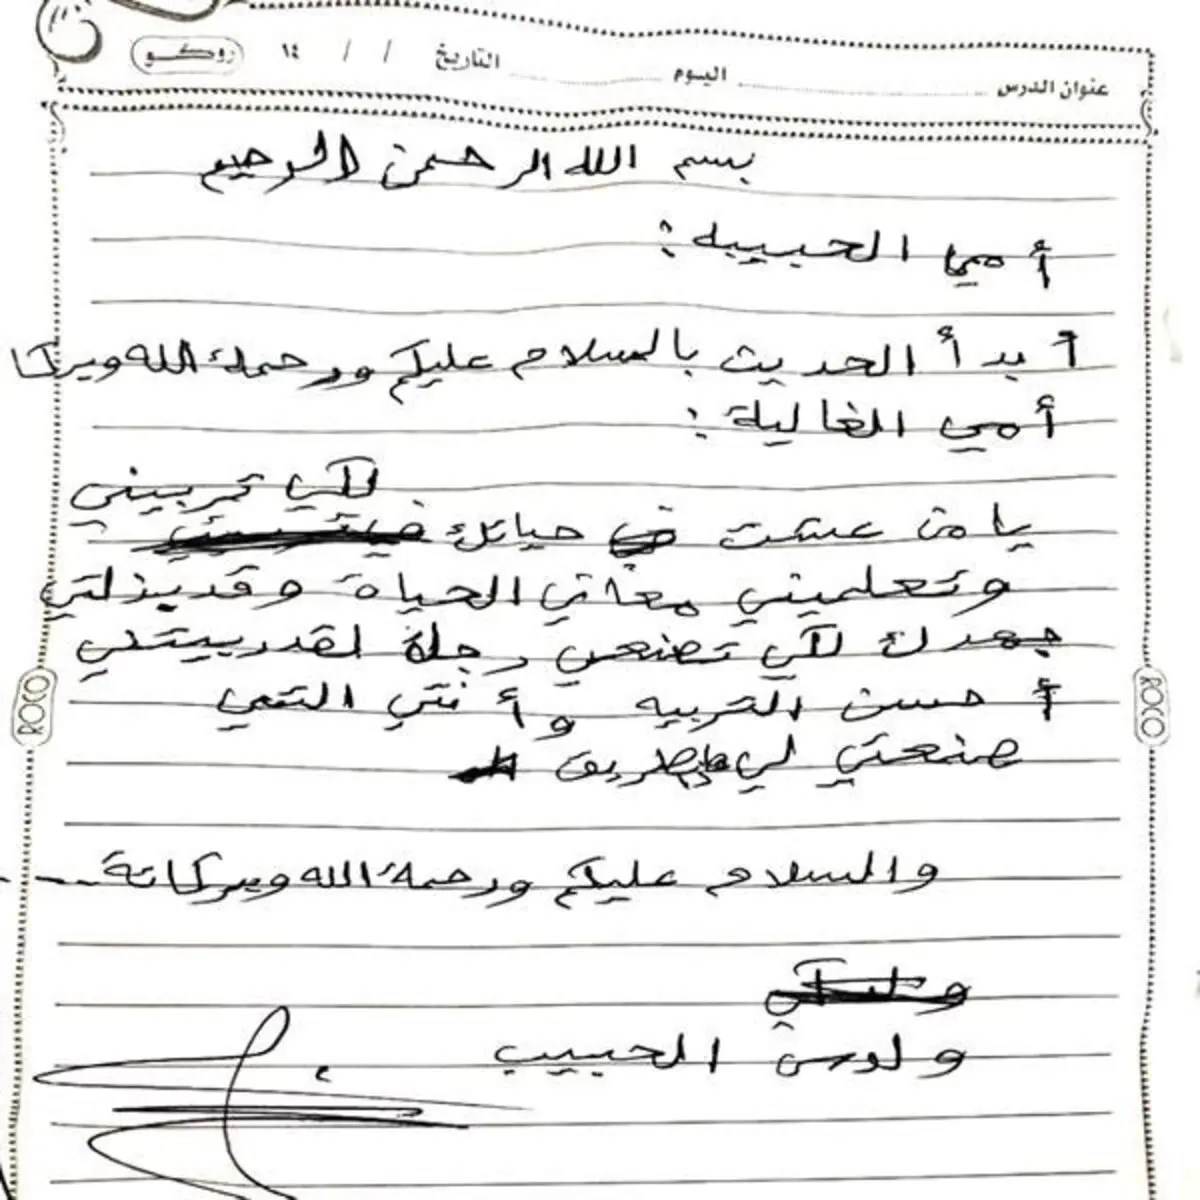 عنوان الدرس اليوم التاريخ / / ١٤ روكو
بسم الله الرحمن الرحيم
أمي الحبيبه :
أبدأ الحديث بالسلام عليكم ورحمة الله وبركا
أمي الغالية :
لكي تربيني
يا من عشت في حياتك
وتعلميني معاني الحياة وقد بذلتي
جهدك لكي تصنعي رجلة لقد ربيتني
أحسن التربيه وأنتي التي
صنعتي لي طريق
والسلام عليكم ورحمة الله وبركاتة
ولدكي الحبيب
ROCO
ROCO